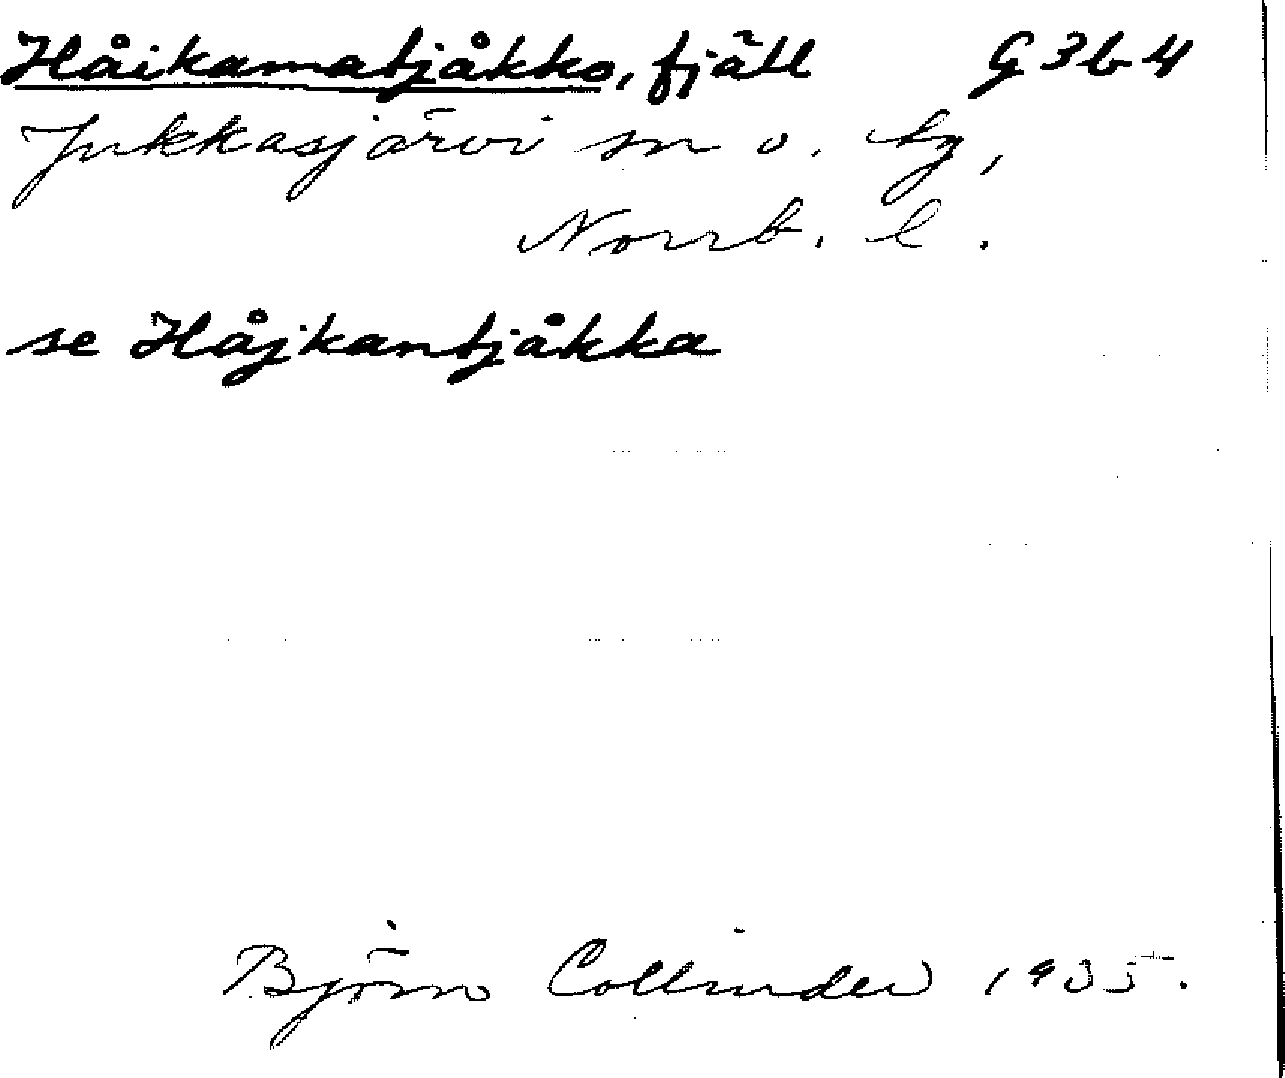 Håikamatjåkko, fjäll G3b4
Jukkasjärvi sn o. tg,
Norrb. l.
se Håjkantjåkka
Björn Collinder 1935.